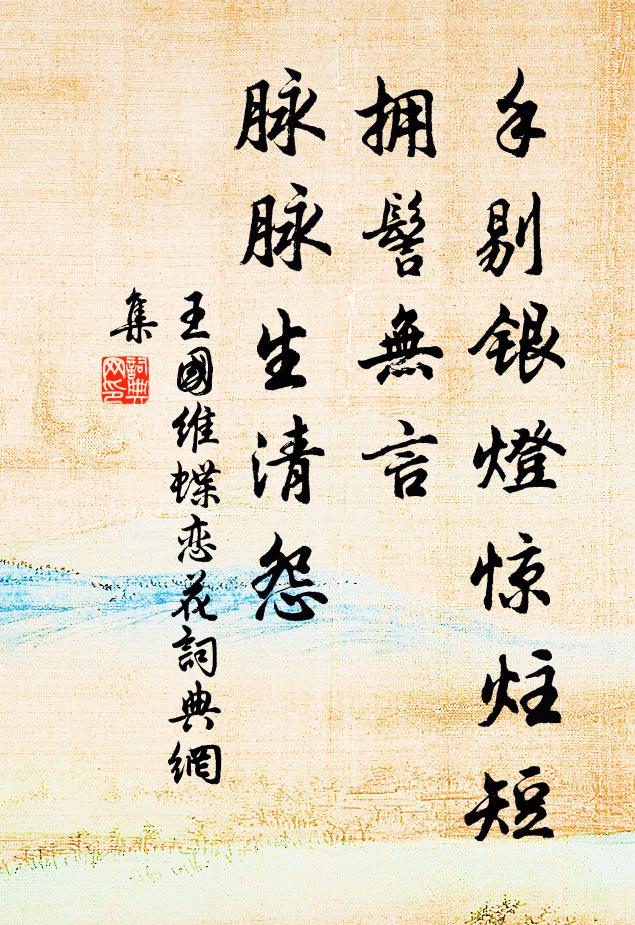 手剔银燈惊炷短
拥髻無言
脉脉生清怨
王國维蝶恋花詞典網
集
詞典網印